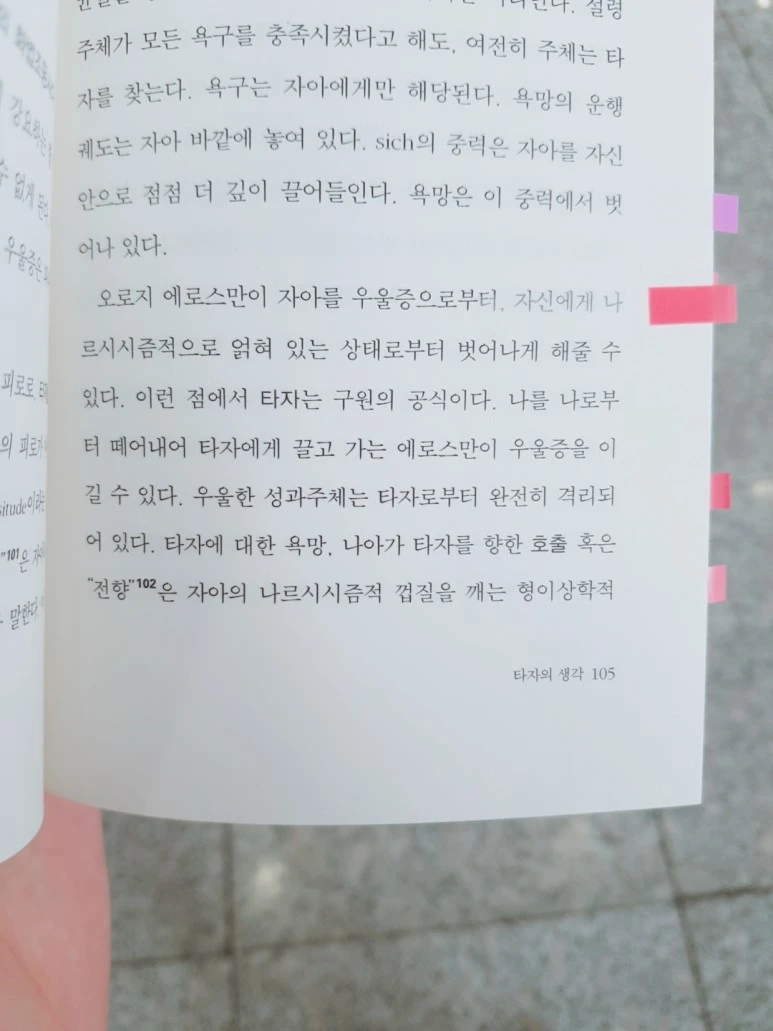 설령
주체가 모든 욕구를 충족시켰다고 해도, 여전히 주체는 타
자를 찾는다. 욕구는 자아에게만 해당된다. 욕망의 운행
궤도는 자아 바깥에 놓여 있다. sich의 중력은 자아를 자신
안으로 점점 더 깊이 끌어들인다. 욕망은 이 중력에서 벗
어나 있다.
오로지 에로스만이 자아를 우울증으로부터, 자신에게 나
르시시즘적으로 얽혀 있는 상태로부터 벗어나게 해줄 수
있다. 이런 점에서 타자는 구원의 공식이다. 나를 나로부
터 떼어내어 타자에게 끌고 가는 에로스만이 우울증을 이
길 수 있다. 우울한 성과주체는 타자로부터 완전히 격리되
어 있다. 타자에 대한 욕망, 나아가 타자를 향한 호출 혹은
“전향”102은 자아의 나르시시즘적 껍질을 깨는 형이상학적
타자의 생각 105
강요하는
수 없게 된다
우울증은
피로로,
의 피로가
situde이라는
”101은
말한다